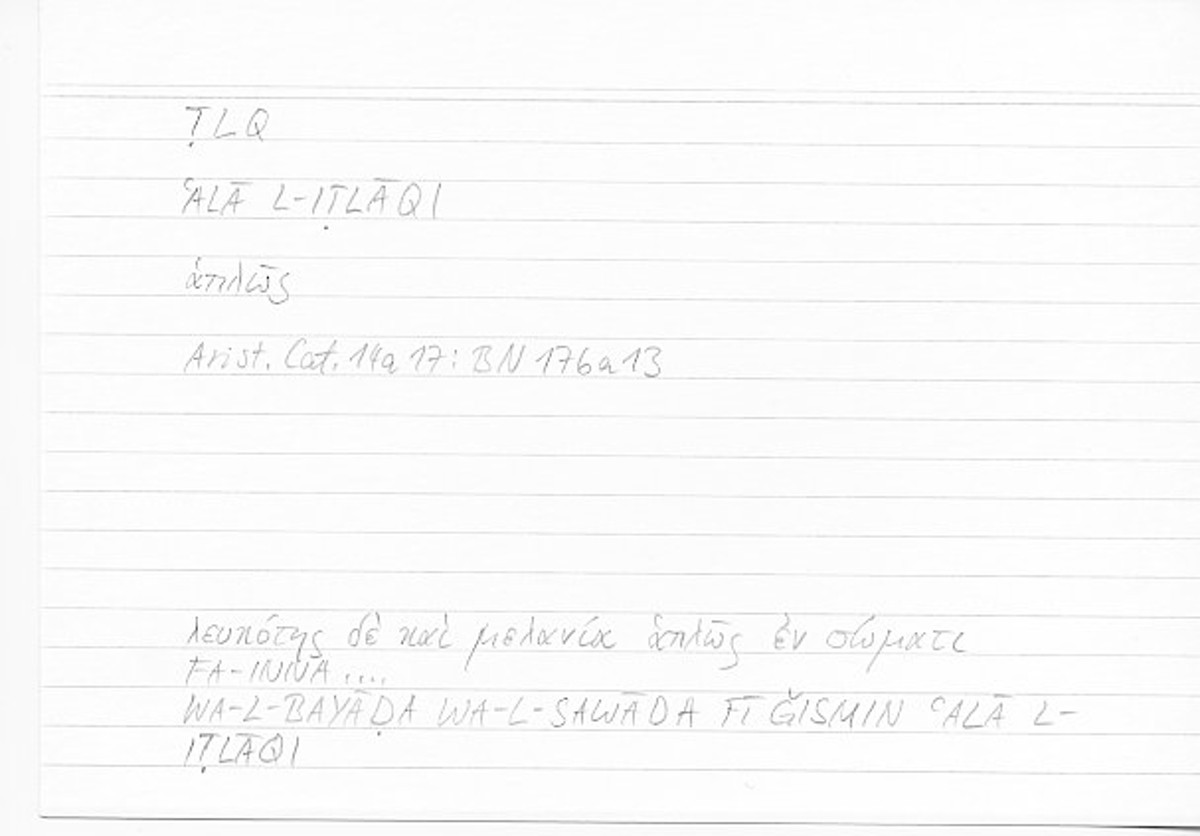 ṬLQ
ʿALĀ L-IṬLĀQI
ἁπλῶς
Arist. Cat. 14a 17: BN 176a13
λευκότης δὲ καὶ μελανία ἁπλῶς ἐν σώματι
FA-INNA ....
WA-L-BAYĀḌA WA-L-SAWĀDA FĪ ǦISMIN ʿALĀ L-
IṬLĀQI